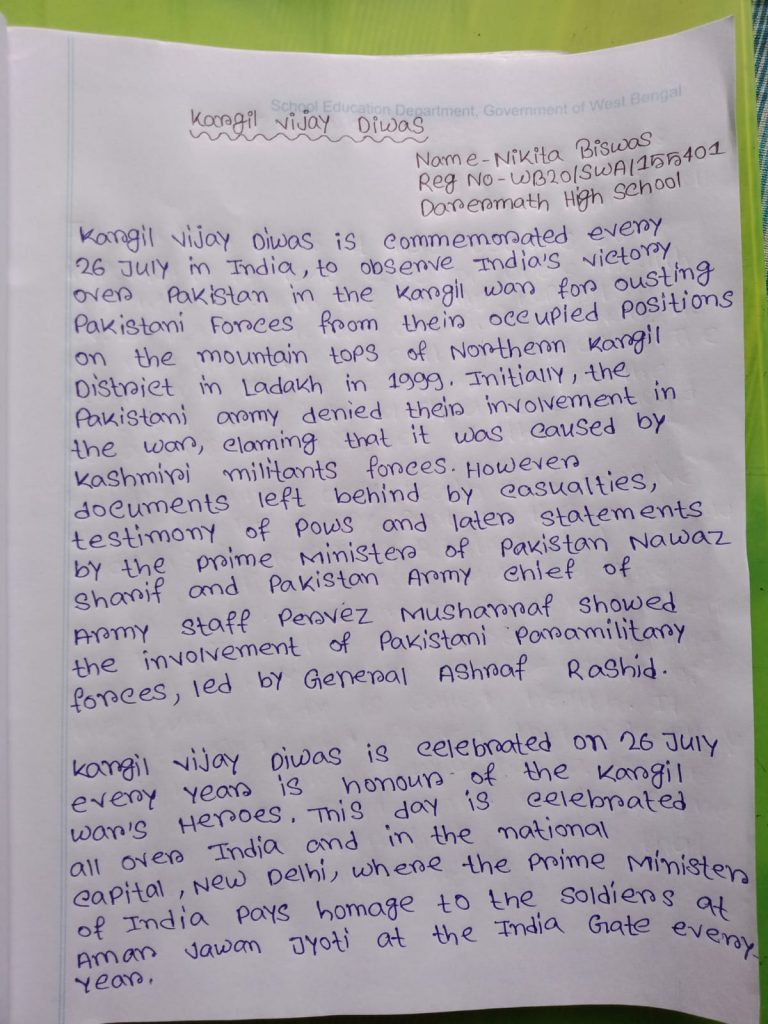 School Education Department, Government of West Bengal
Kargil Vijay Diwas
Name-Nikita Biswas
Reg No-WB20/SWA/155401
Darermath High School
Kargil Vijay Diwas is commemorated every
26 July in India, to observe India's victory
over Pakistan in the Kargil war for ousting
Pakistani Forces from their occupied positions
on the mountain tops of Northern Kargil
District in Ladakh in 1999. Initially, the
Pakistani army denied their involvement in
the war, claming that it was caused by
Kashmiri militants forces. However
documents left behind by casualties,
testimony of POWs and later statements
by the prime Minister of Pakistan Nawaz
Sharif and Pakistan Army chief of
Army staff Pervez Musharraf showed
the involvement of Pakistani Paramilitary
forces, led by General Ashraf Rashid.
Kargil Vijay Diwas is celebrated on 26 July
every year is honour of the Kargil
war's Heroes. This day is celebrated
all over India and in the national
capital, New Delhi, where the prime Minister
of India pays homage to the soldiers at
Amar Jawan Jyoti at the India Gate every
year.